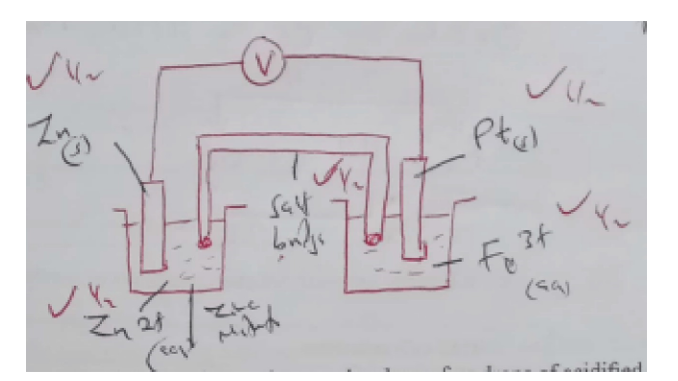 V
✓ ½
✓ ½
Zn(s)
Pt(s)
✓ ½
salt
bridge
✓ ½
Fe 3+
(aq)
✓ ½
Zn 2+
(aq)
zinc
of acidified